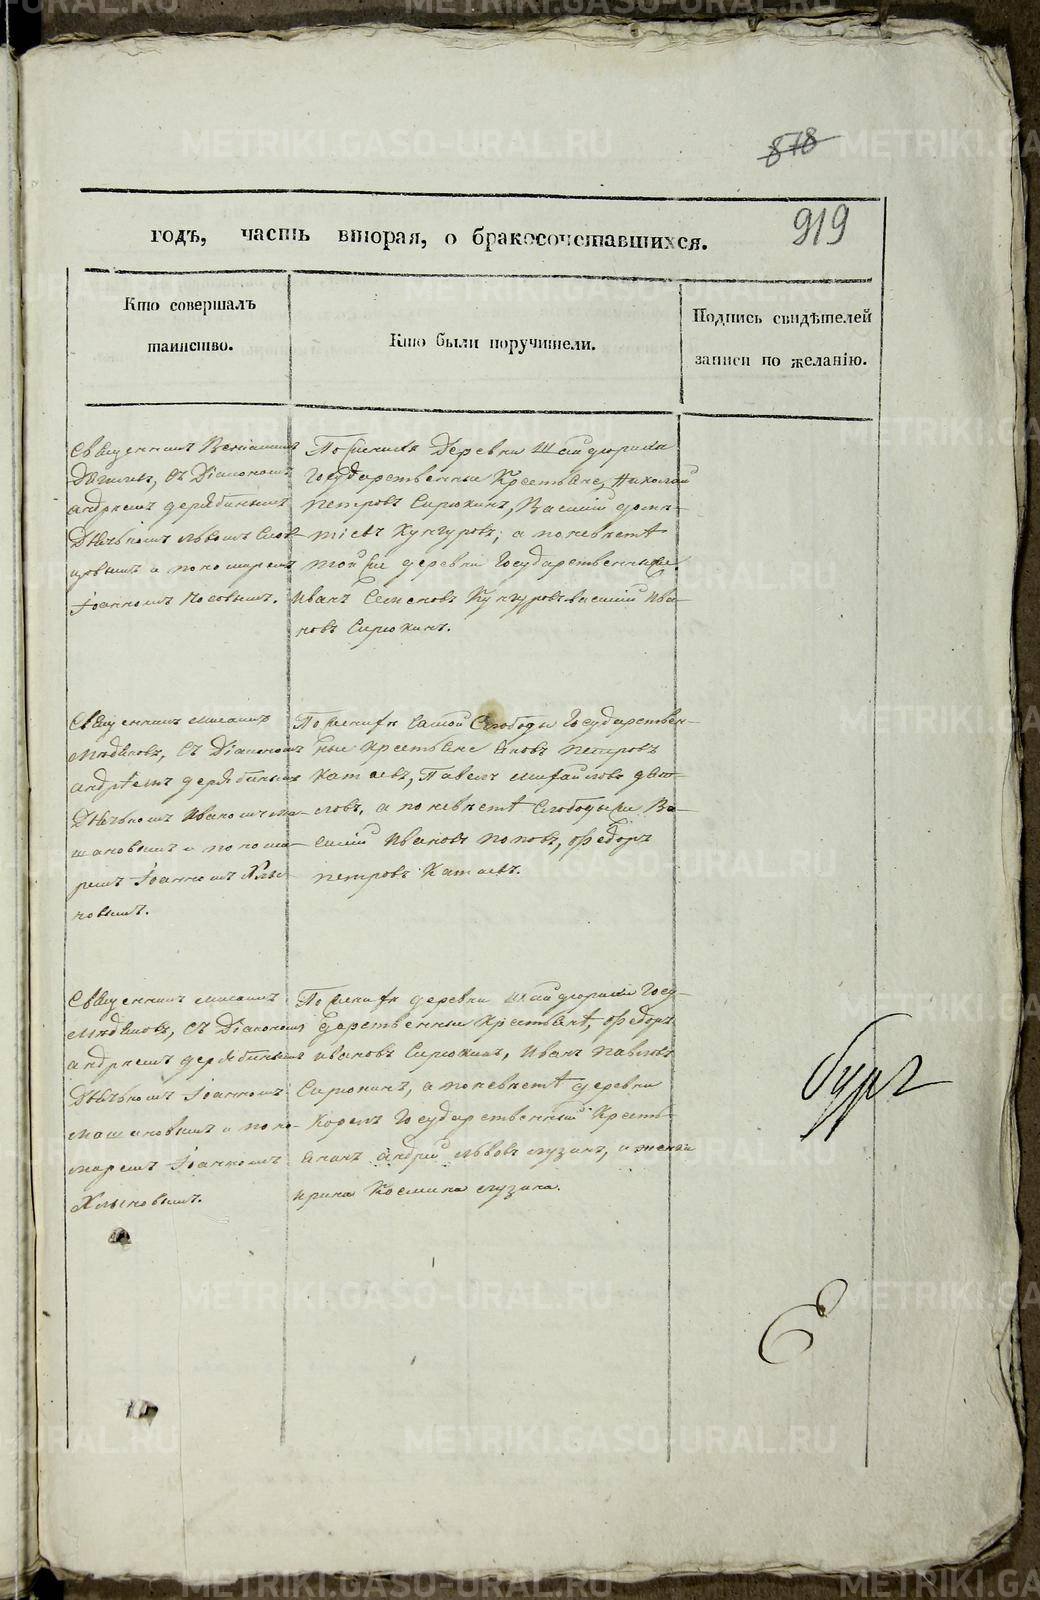 878
919
годъ, часть вторая, о бракосочетавшихся.
Кто совершалъ
таинство.
Кто были поручители.
Подпись свидѣтелей
записи по желанію.
Священникъ Веніаминъ
съ Діакономъ
андреемъ дерябинымъ
Дьячькомъ львомъ
и пономаремъ
Іоанномъ Носовымъ.
По женихѣ Деревни Шайдурихи
Государственные Крестьяне, Николай
петровъ Сирюкинъ, Василій
Кунгуровъ; а по невѣстѣ
той же деревни Государственные же
Иванъ Семеновъ Кунгуровъ василій Ива-
новъ Сирюкинъ.
Священникъ михаилъ
съ Діакономъ
андреемъ дерябинымъ
Дьячькомъ Иваномъ ма-
мановымъ и понома-
ремъ Іоанномъ Хлы-
новымъ.
По женихѣ самой Слободы Государствен-
ные крестьяне петровъ
катаевъ, Павелъ михайловъ
а по невѣстѣ Слободы же Ва-
силій Ивановъ поповъ, федоръ
петровъ Катаевъ.
Священникъ михаилъ
съ Діакономъ
андреемъ дерябинымъ
Дьячькомъ Іоанномъ
мамановымъ и поно-
маремъ Іоанномъ
Хлыновымъ.
По женихѣ деревни шайдурихи Госу-
дарственные Крестьянѣ, федоръ
ивановъ Сирюкинъ, Иванъ павловъ
Сирюкинъ, а по невѣстѣ деревни
Государственный Кресть-
янинъ андрей львовъ лузинъ, и женка
ирина Козмина лузина.
бург
Е
METRIKI.GASO-URAL.RU